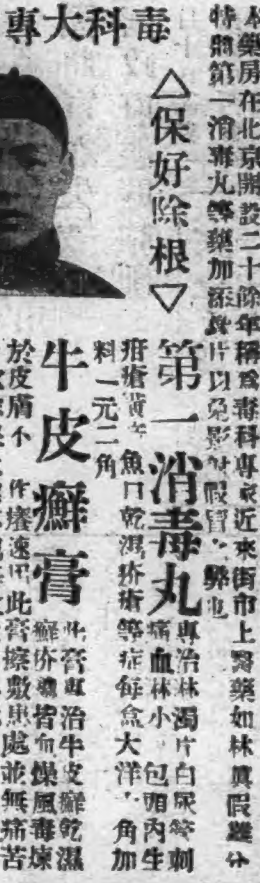 專大科毒
本藥房在北京開設二十餘年稱為毒科專家近來街市上醫藥如林真假難分
特將第一消毒丸等藥加添
片以免影射假冒
△保好除根▽
第一消毒丸
專治林濁片白尿等刺
痛血林小
包頭內生
疳瘡黃
魚口乾濕疥瘡等症每盒大洋
角加
料一元二角
牛皮癬膏
此膏專治牛皮癬乾濕
癬疥
皆
燥風毒
於皮膚不
作癢速用此膏擦敷患處並無痛苦